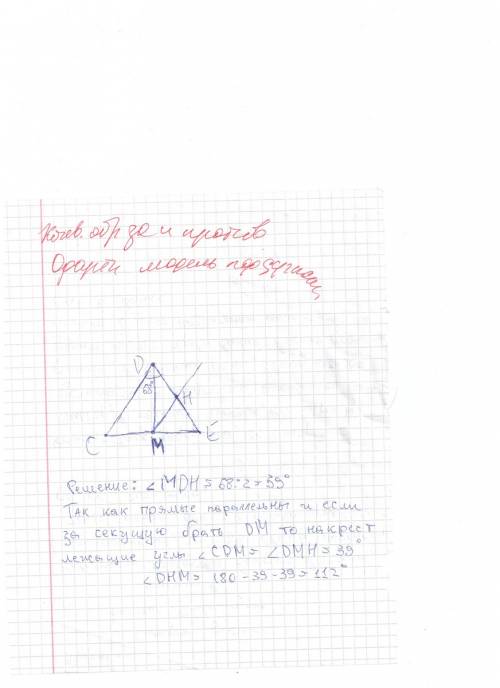 обр за и
модель
D
68°
H
C
M
E
Решение: ∠MDH = 68:2=39°
Так как прямые параллельны и если
за секущую брать DM то накрест
лежащие углы ∠CDM = ∠DMH = 39°
∠DHM = 180 - 39 - 39 = 112°